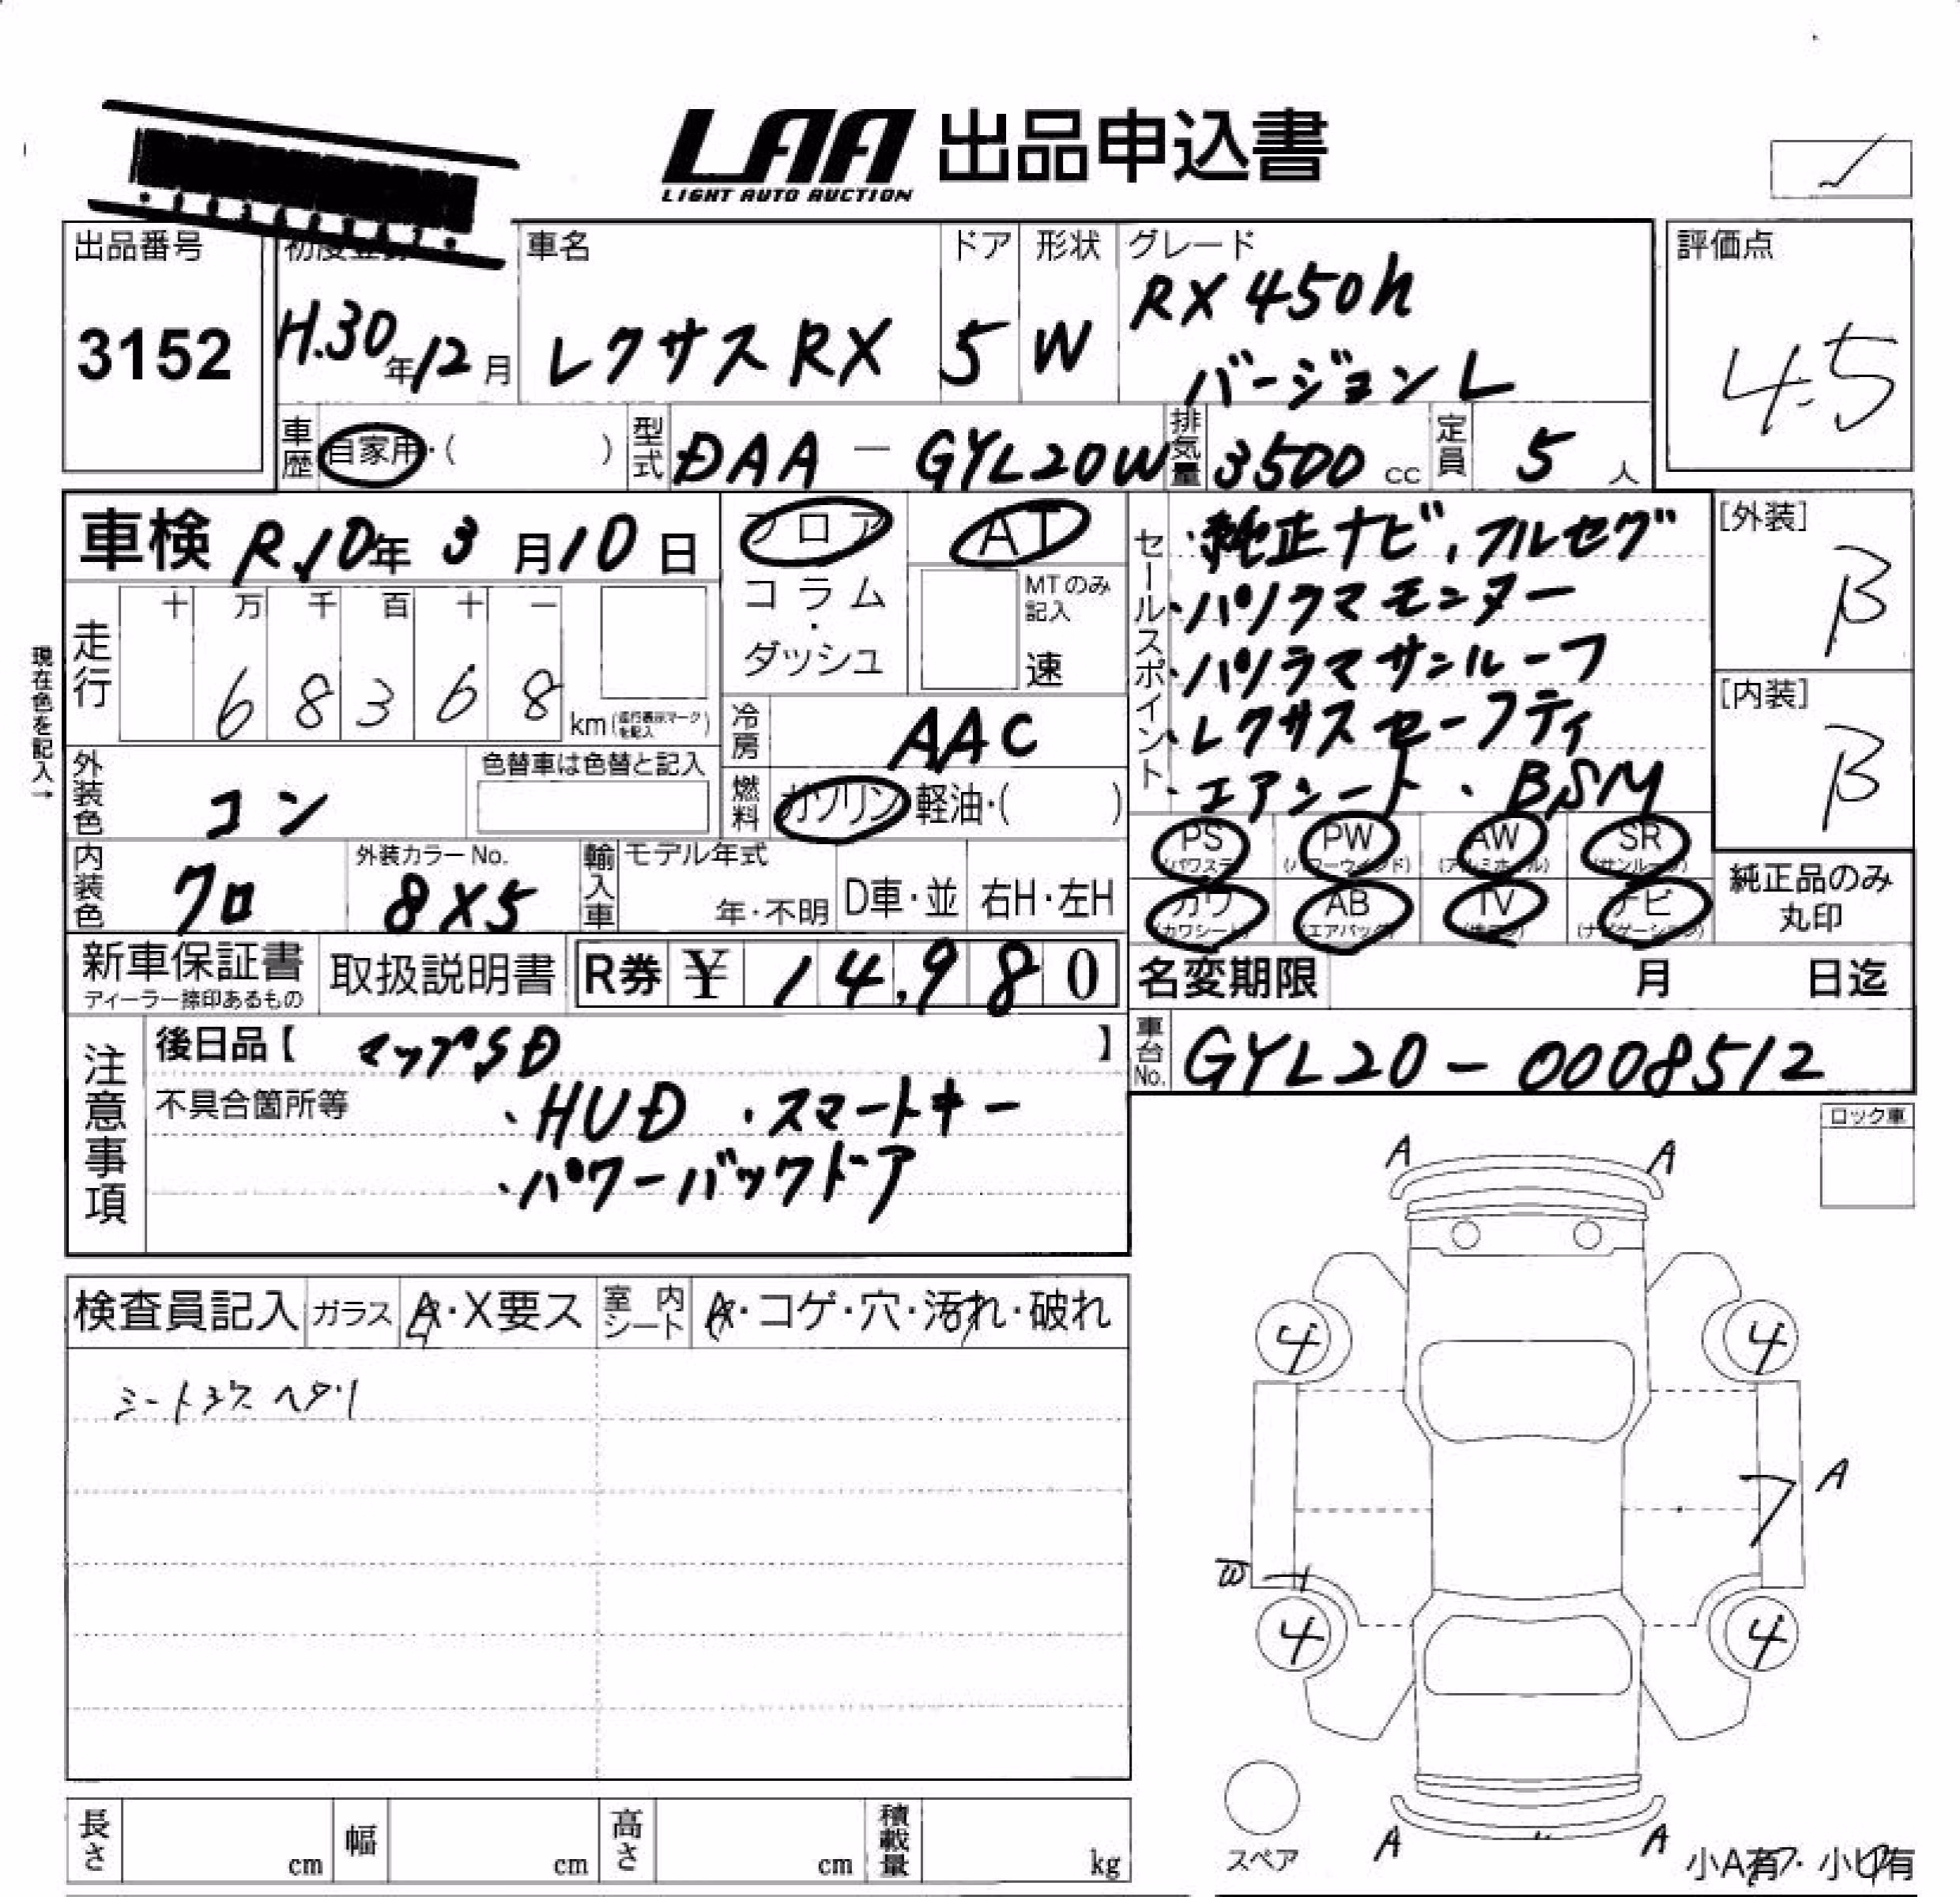 LAA 出品申込書
LIGHT AUTO AUCTION
出品番号
3152
車名
レクサス RX
ドア
5
形状
W
グレード
RX 450h
バージョン L
評価点
4.5
H.30年12月
車歴
自家用・( )
型式
DAA - GYL20W
排気量
3500 cc
定員
5 人
車検 R.10年 3月10日
フロア
コラム・ダッシュ
AT
MTのみ記入
速
セールスポイント
・純正ナビ, フルセグ
・パノラマモニター
・パノラマサンルーフ
・レクサスセーフティ
・エアシート ・BSM
[外装]
B
[内装]
B
現在色を記入→
走行
十 万 千 百 十 一
6 8 3 6 8
km(走行表示マークを記入)
冷房
AAC
外装色
コン
色替車は色替と記入
燃料
ガソリン・軽油・( )
PS (パワステ)
PW (パワーウインド)
AW (アルミホイール)
SR (サンルーフ)
内装色
クロ
外装カラーNo.
8X5
輸入車
モデル年式
年・不明
D車・並
右H・左H
カワ (カワシート)
AB (エアバック)
TV
ナビ (ナビゲーション)
純正品のみ丸印
新車保証書
ディーラー捺印あるもの
取扱説明書
R券 ¥ 14,980
名変期限 月 日迄
注意事項
後日品【 マップSD 】
車台No.
GYL20-0008512
不具合箇所等
・HUD ・スマートキー
・パワーバックドア
ロック車
A A
検査員記入
ガラス
A・X要ス
室内シート
A・コゲ・穴・汚れ・破れ
4 4
A
4 4
スペア
A A
小A有・小U有
長さ cm
幅 cm
高さ cm
積載量 kg